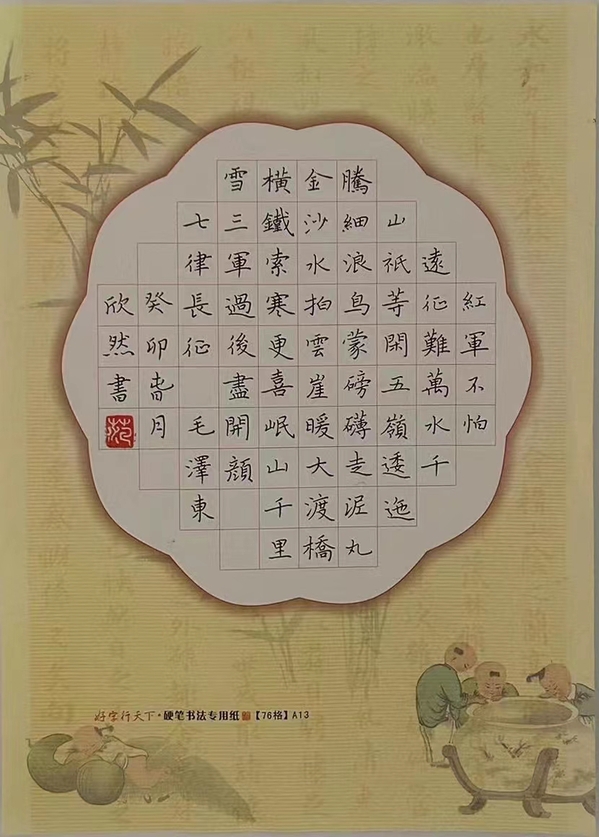 紅軍不怕
遠征難萬水千
山祇等閑五嶺逶迤
騰細浪烏蒙磅礴走泥丸
金沙水拍雲崖暖大渡橋
橫鐵索寒更喜岷山千里
雪三軍過後盡開顏
七律長征 毛澤東
癸卯旾月
欣然書
好字行天下·硬笔书法专用纸【76格】A13